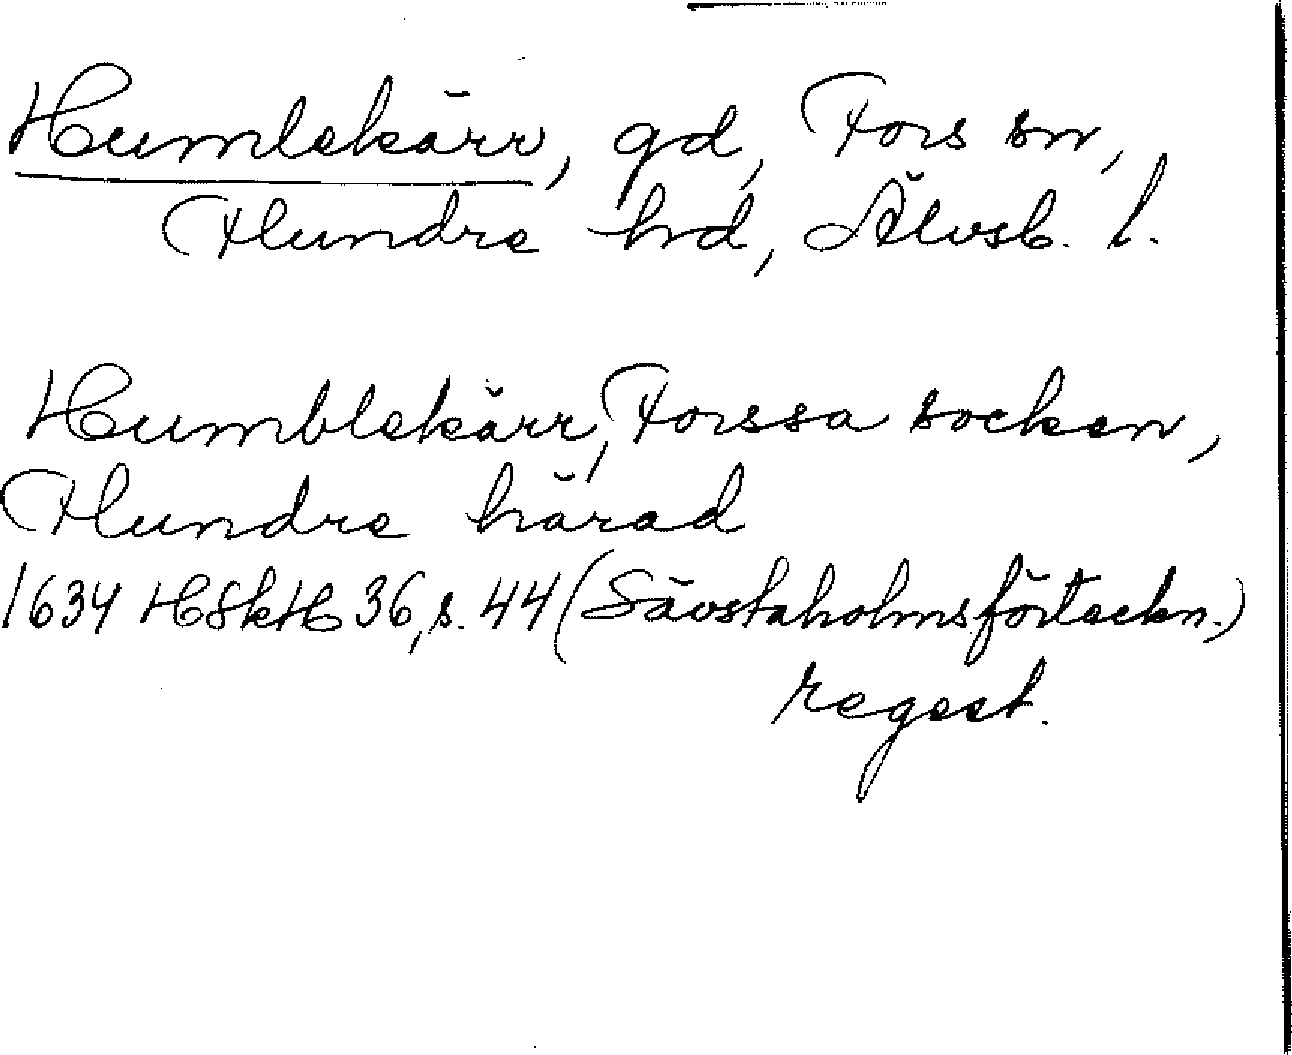 Humlekärr, gd, Fors sn,
Flundre hrd, Älvsb. l.
Humblekärr, Forssa socken,
Flundre härad
1634 HSkH 36, s. 44 (Sävstaholmsförteckn.)
regest.